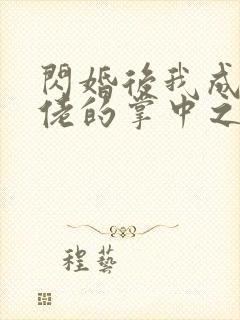 閃婚後我成
佬的掌中之
程藝